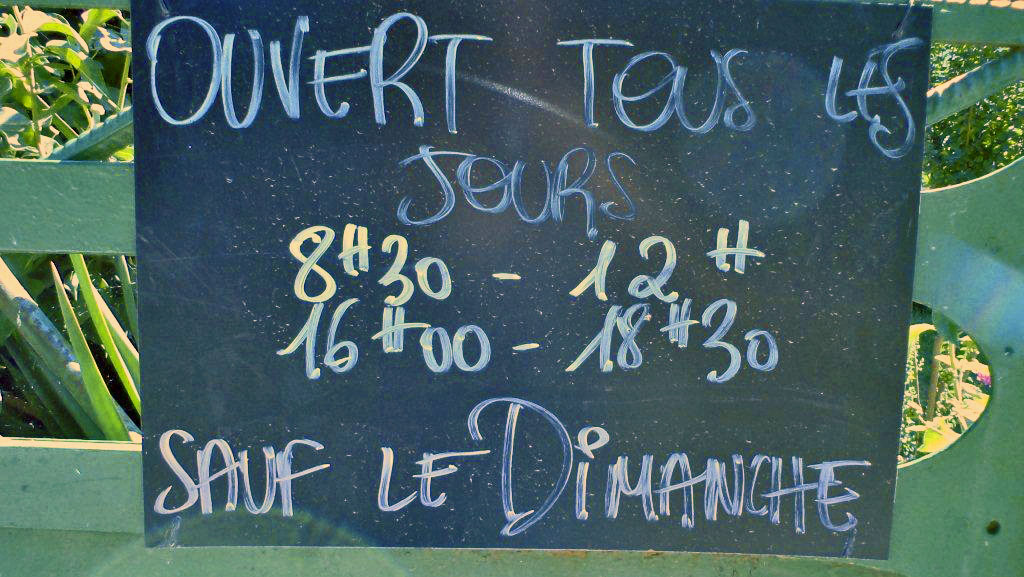 OUVERT TOUS LES
JOURS
8H30 - 12H
16H00 - 18H30
SAUF LE DiMANCHE